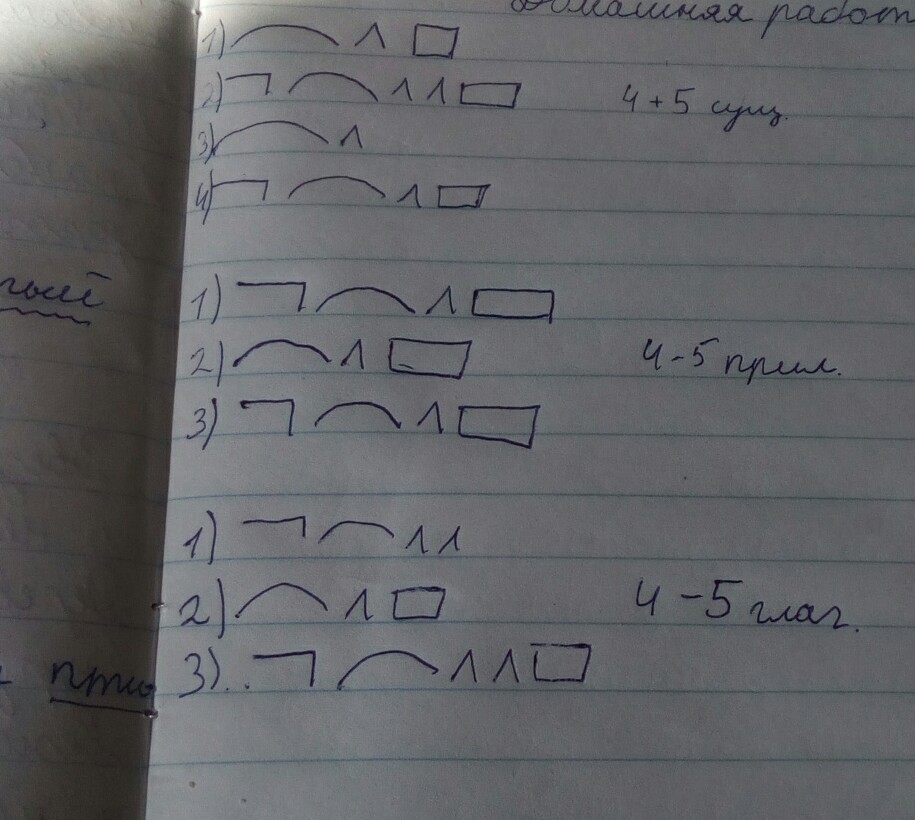 Домашняя работ
1)
2) 4+5 сущ.
3)
4)
1)
2) 4-5 прил.
3)
1)
2) 4-5 глаг.
3)